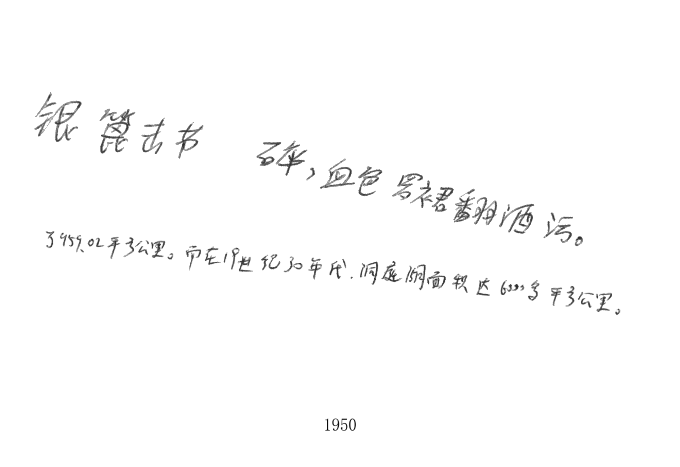 银篦击节 碎,血色罗裙翻酒污。
了959.02平方公里。而在19世纪30年代,洞庭湖面积达6000多平方公里。
1950